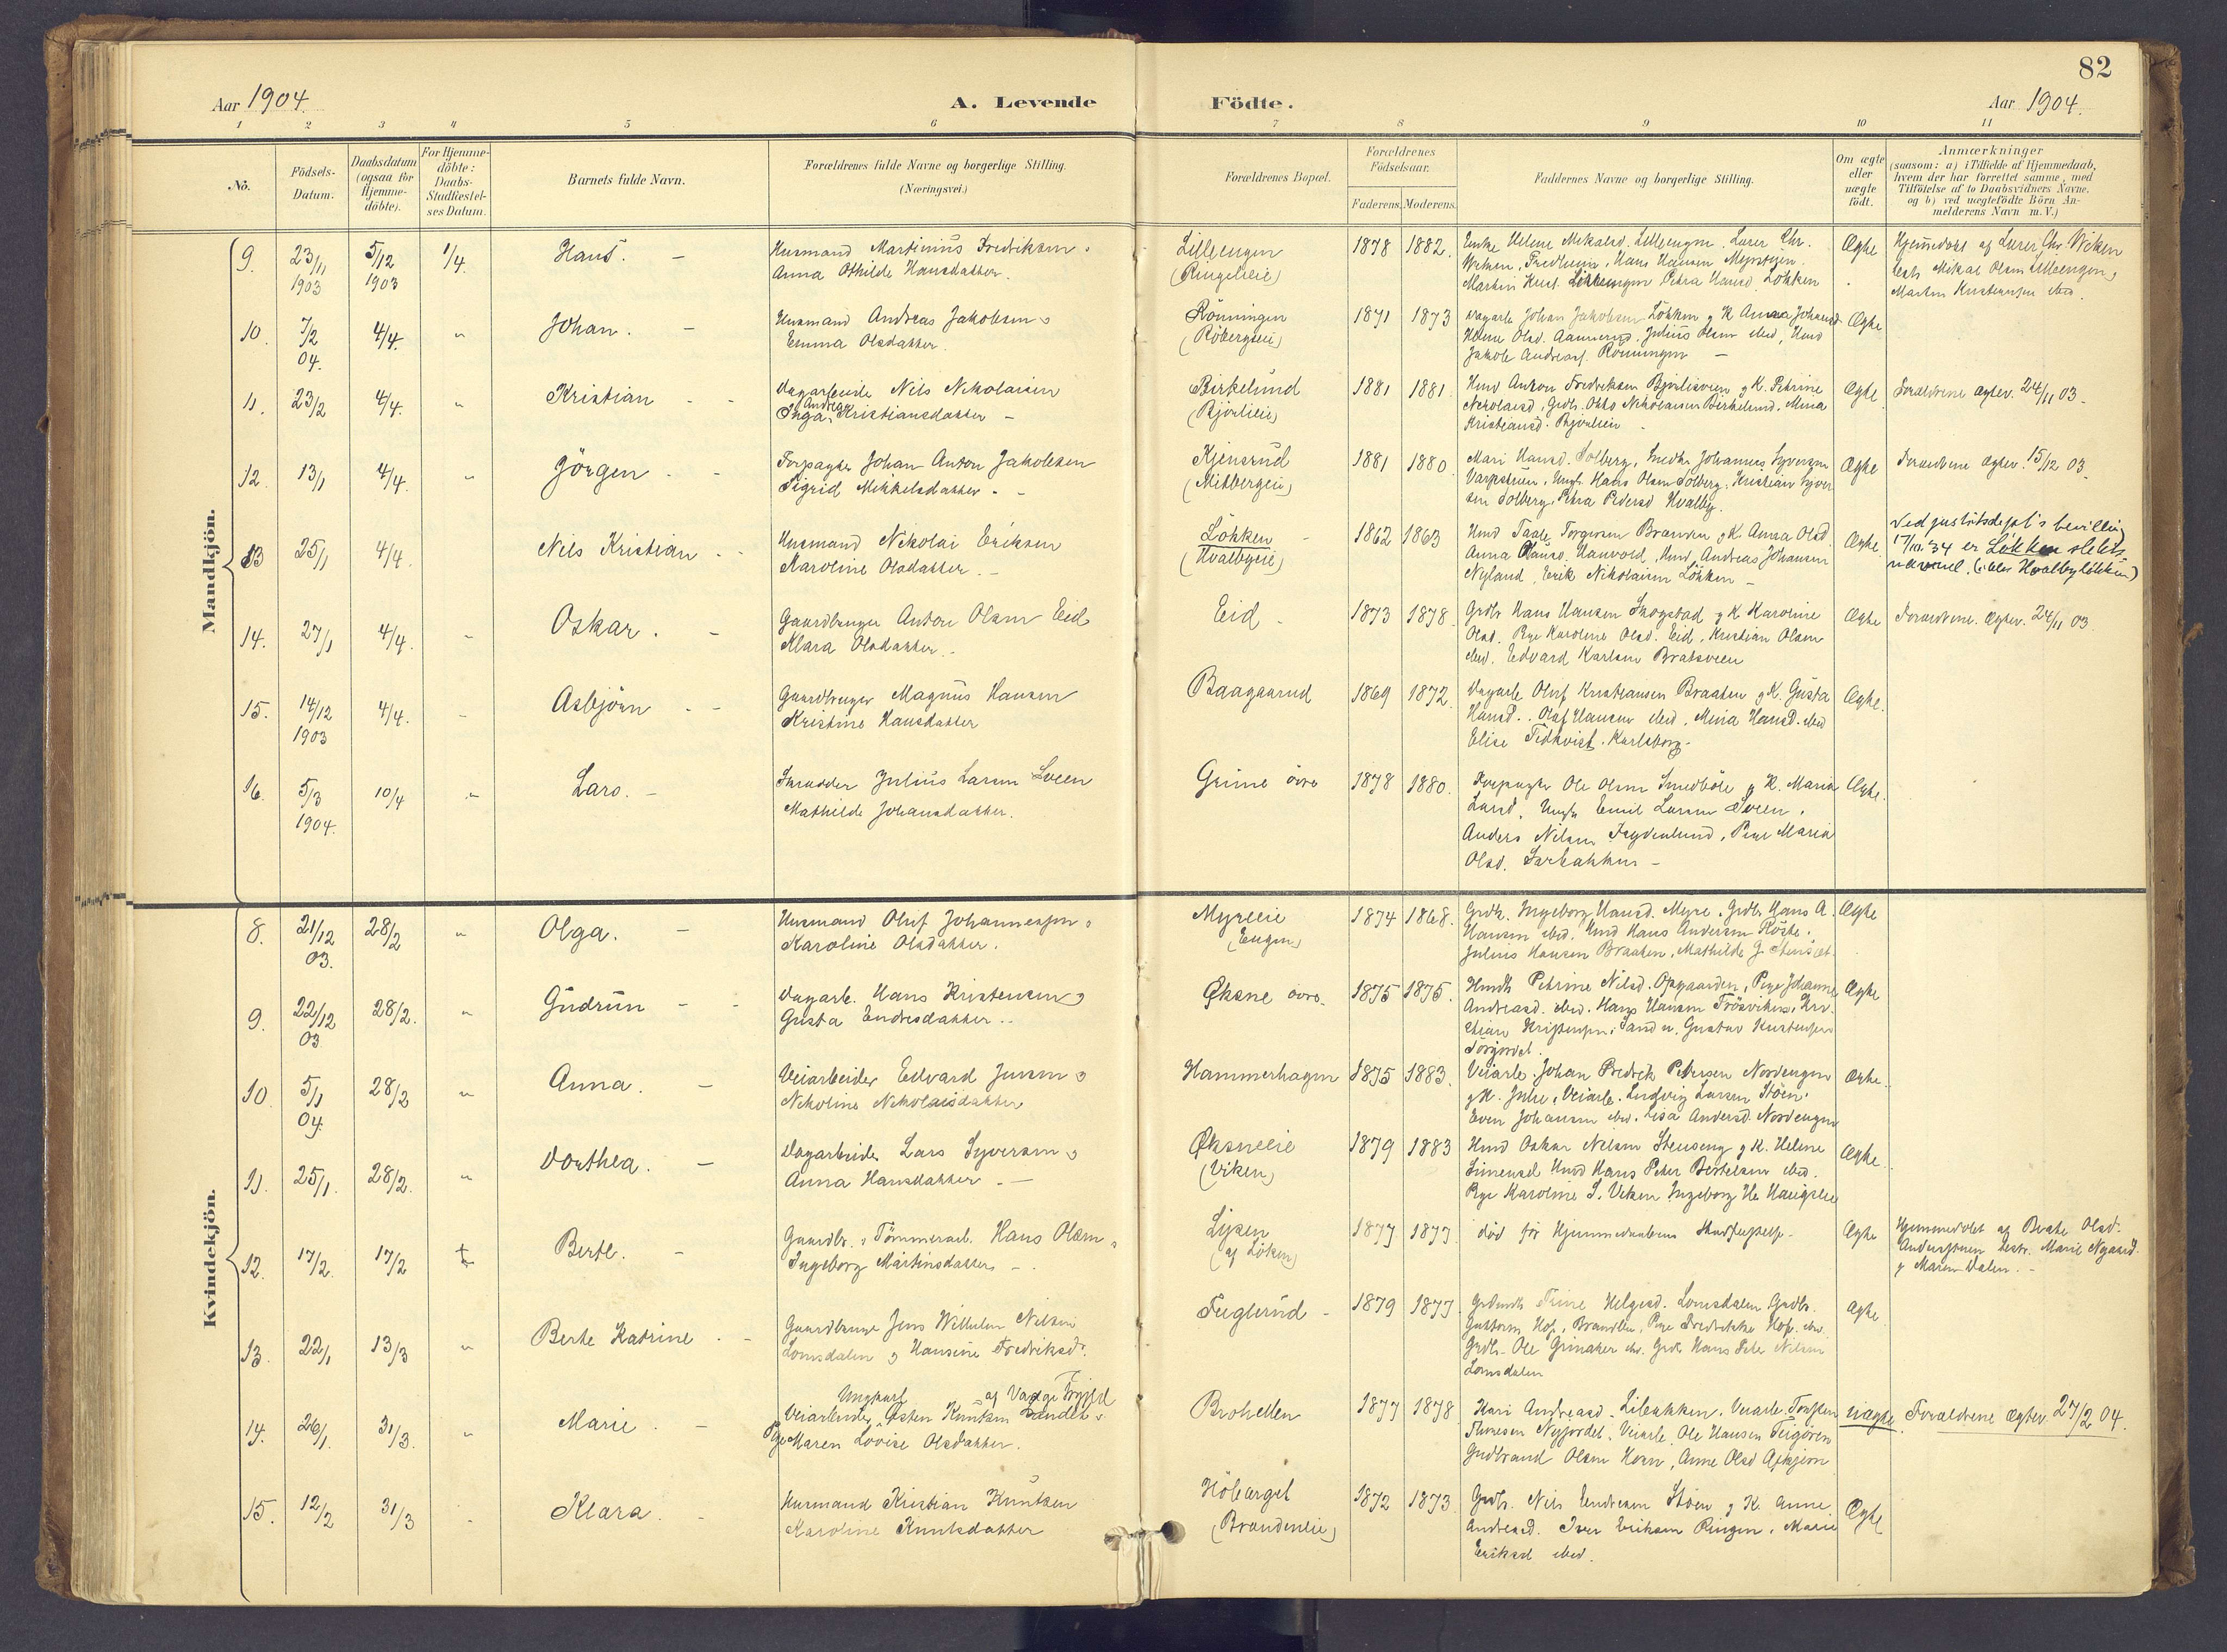 82
Aar 1904.
A. Levende Födte.
Aar 1904.
1 2 3 4 5 6 7 8 9 10 11
No.
Födsels-Datum.
Daabsdatum (ogsaa for Hjemme-döbte).
For Hjemme-döbte: Daabs-Stadfæstel-ses Datum.
Barnets fulde Navn.
Forældrenes fulde Navne og borgerlige Stilling.
(Næringsvei.)
Forældrenes Bopæl.
Forældrenes Födselsaar.
Faderens. Moderens.
Faddernes Navne og borgerlige Stilling.
Om ægte eller uægte födt.
Anmærkninger
(saasom: a) i Tilfælde af Hjemmedaab, hvem der har forrettet samme, med Tilföielse af to Daabsvidners Navne, og b) ved uægtefödte Börn An-melderens Navn m. V.)
Mandkjön.
9. 23/11 1903 5/12 1903 4/4. Hans. -
Husmand Martinius Fredriksen
Anna Othilde Hansdatter.
Lilleengen
(Ringelieie)
1878 1882.
Enke Helene Mikalsd. Lilleengen. Lærer Chr.
Wiken, Fredheim, Hans Hansen Myrstøen
Martin Krist. Lilleengen Petra Hansd. Løkken
Ægte
Hjemmedøbt af Lærer Chr. Wiken
test. Mikal Olsen Lilleengen,
Martin Kristiansen ibid.
10. 7/2 04. 4/4. " Johan. -
Husmand Andreas Jakobsen
Emma Olsdatter.
Rönningen
(Röbergseie)
1871 1873
Dagarb. Johan Jakobsen Løkken g K Anna Johansd
Helene Olsd. Aannerud. Julius Olsen ibid, Hmd
Jakob Andreass. Rönningen -
Ægte
11. 23/2 4/4. " Kristian - -
Dagarbeide Nils Nikolaisen
Inga Andrea Kristiansdatter -
Birkelund
(Bjørlieie)
1881 1881
Hmd Anton Fredriksen Bjørlisveen g K. Petrine
Nikolaisd, Grdb. Otto Nikolaisen Birkelund. Mina
Kristiansd. Bjørlieie -
Ægte
Forældrene ægtev. 24/11 03.
12. 13/1 4/4. " Jörgen - -
Forpagter Johan Anton Jakobsen
Sigrid Mikkelsdatter - -
Kjensrud
(Mitbergeie)
1881 1880.
Mari Hansd. Solberg, Smedm. Johannes Syversen
Varpstuen, Ungk. Hans Olsen Solberg, Kristian Syver
sen Solberg, Petra Pedersd Hvalby.
Ægte
Forældrene ægtev. 15/12 03.
13 25/1 4/4. Nils Kristian - -
Husmand Nikolai Eriksen
Karoline Olsdatter. -
Løkken -
(Hvalbyeie)
1862 1863
Hmd Taale Torgersen Branden g K. Anna Olsd.
Anna Hansd. Hanvold, Hmd. Andreas Johansen
Nyland, Erik Nikolaisen Løkken -
Ægte.
Ved justitsdept's bevilling
17/10. 34 er Løkken slekts-
navnet. (: eller Hvalbyløkken)
14. 27/1 4/4. " Oskar. -
Gaardbruger Anton Olsen Eid
Klara Olsdatter. -
Eid -
1873 1878.
Grdbr Hans Hansen Skogstad g K Karoline
Olsd. Pige Karoline Olsd. Eid, Kristian Olsen
ibid. Edvard Karlsen Bratsveen
Ægte
Forældrene. ægtev. 24/11 03.
15. 14/12 1903 4/4. " Asbjörn - -
Gaardbruger Magnus Hansen
Kristine Hansdatter
Baagaarud
1869 1872.
Dagarb. Oluf Kristiansen Braaten g K. Gusta
Hansd.. Olaf Hansen ibid, Mina Hansd. ibid
Elise Fidkvist. Karlsborg-
Ægte.
16. 5/3 1904. 10/4 " Lars. -
Skrædder Julius Larsen Sveen
Mathilde Johansdatter.
Grime övre
1878 1880.
Forpagter Ole Olsen Smedböle g K. Maria
Larsd. Ungk Emil Larsen Sveen.
Anders Nilsen Frydenlund, Pige Maria
Olsd.
Ægte.
Kvindekjön.
8. 21/12 03. 28/2 " Olga. -
Husmand Oluf Johannessen
Karoline Olsdatter.
Myreeie
(Engen)
1874 1868.
Grdk. Ingeborg Hansd. Myre. Grdb. Hans A.
Hansen ibid. Hmd Hans Andersen Röste.
Julius Hansen Braaten, Mathilde G. Stensæt.
Ægte
9. 22/12 03 28/2. " Gudrun - -
Dagarb. Hans Kristensen
Gusta Endresdatter..
Øksne övre.
1875 1875.
Hmdk Petrine Nilsd. Opgaarden, Pige Johanne
Andreasd. ibid. Hans Hansen Trösviken, Kri-
stian Kristensen, Sand n. Gustav Kristensen
Ægte
10. 5/1 04. 28/2 " Anna. -
Veiarbeider Edvard Jensen
Nikoline Nikolaisdatter
Hammerhagen
1875 1883.
Veiarb. Johan Fredrik Petersen Nordengen
g K. Julie, Veiarb. Ludvig Larsen Stöen.
Even Johansen ibid. Lisa Andersd. Nordengen
Ægte.
11. 25/1. 28/2. " Dorthea. -
Dagarbeider Lars Syversen
Anna Hansdatter. -
Øksneeie
(Viken)
1879 1883
Hmd Oskar Nilsen Stenseng g K. Helene
Simensd Hmd Hans Peter Bertelsen ibid.
Pige Karoline S. Viken Ingeborg He Haugslie
Ægte.
12. 17/2. 17/2 † Berte. -
Gaardbr. & Tömmerarb. Hans Olsen
Ingeborg Martinsdatter -
(af Löken)
1877 1877.
død før Hjemmedaabens Stadfæstelse.
Ægte
Hjemmedöbt af Berte Olsd.
Anderstuen testr. Marie Nygaard
g Maren Dalen. -
13. 22/1 13/3 " Berte Katrine - -
Gaardbruger Jens Wilhelm Nilsen
Lomsdalen & Hansine Fredriksd.
Fuglerud -
1879 1877.
Grdmdk Trine Helgesd. Lomsdalen Grdbr.
Guttorm Hof, Brandbu, Pige Fredrikke Hof. ibid
Grdb. Ole Grinaker ibid. Grdb Hans Peter Nilsen
Lomsdalen
Ægte
14. 26/1. 31/3. " Marie. -
Ungkarl af Vang
Veiarbeider Østen Knutsen
Pige Maren Lovise Olsdatter.
Brohellen
1877 1878
Kari Andreasd. Libakken. Veiarb. Torsten
Nyjordet. Veiarb. Ole Hansen
Gudbrand Olsen Horn, Anne Olsd
uægte.
Forældrene ægtev. 27/2 04.
15. 12/2 31/3 Klara. -
Husmand Kristian Knutsen
Karoline Knutsdatter
Höberget
(Brandeneie)
1872 1873.
Grdb. Nils Endresen Stöen g K. Anne
Andreasd. Iver Eriksen Ringen. Marie
Eriksd ibid.
Ægte